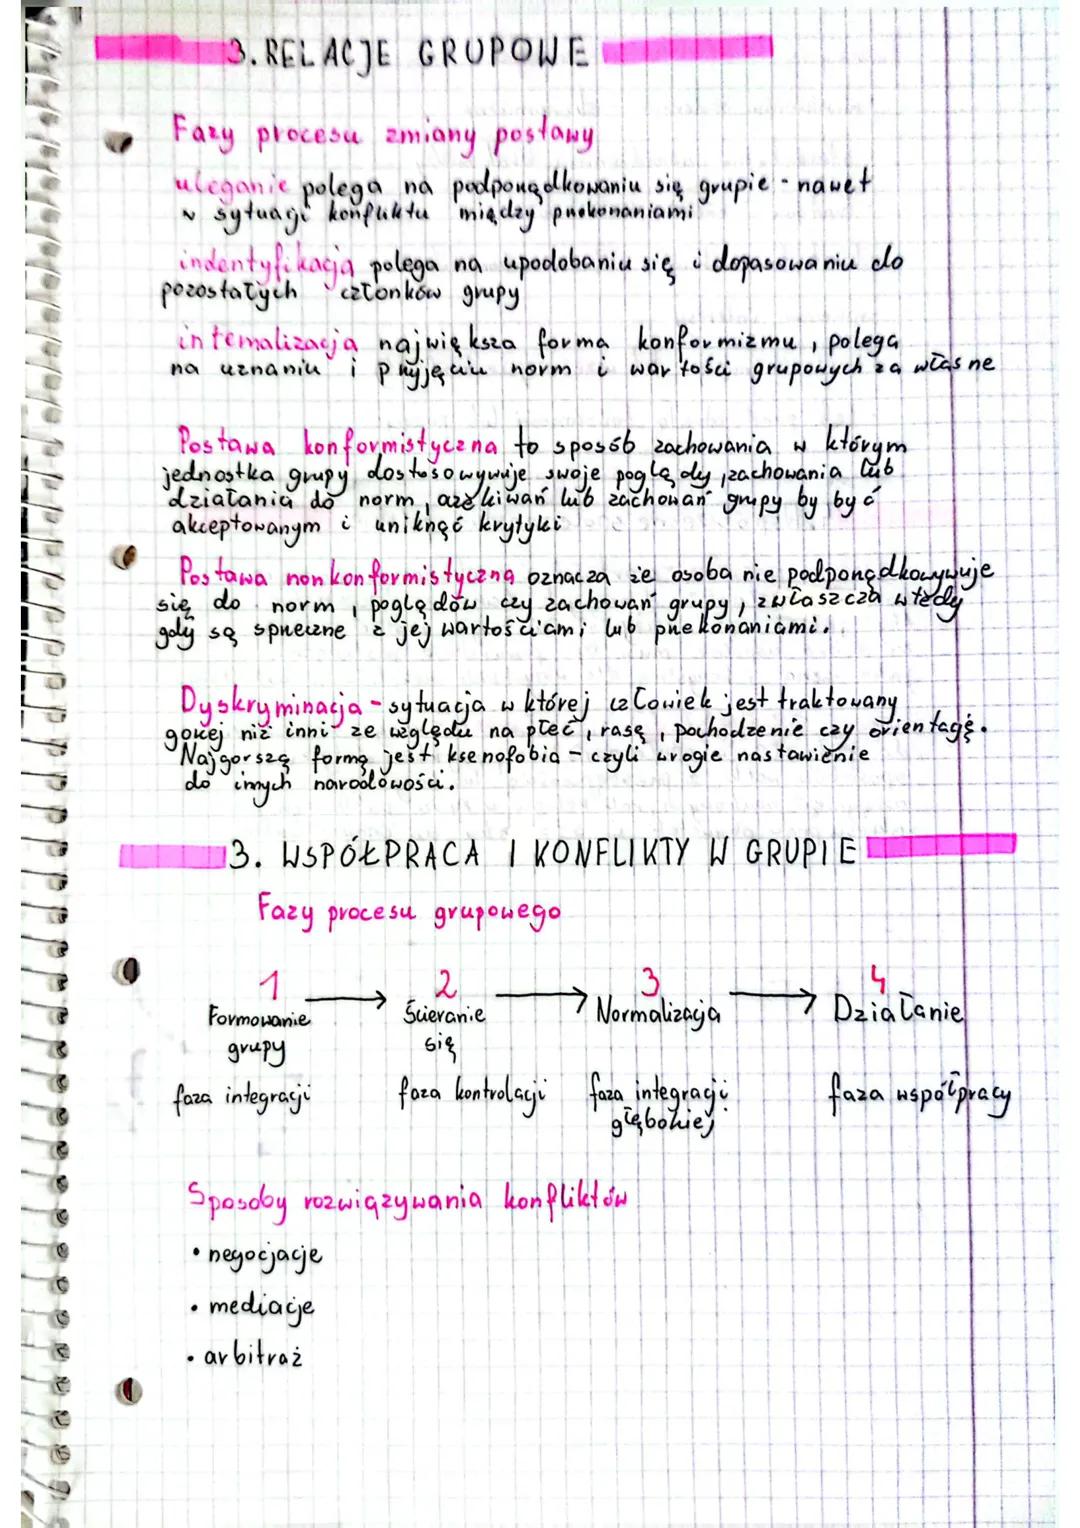 3. RELACJE GRUPOWE
Fazy procesu zmiany postawy
uleganie polega na podporządkowaniu się grupie - nawet
w sytuacji konfliktu między przekonaniami
indentyfikacja polega na upodobaniu się i dopasowaniu do
pozostałych członków grupy
internalizacja największa forma konformizmu, polega
na uznaniu i przyjęciu norm i wartości grupowych za własne
Postawa konformistyczna to sposób zachowania w którym
jednostka grupy dostosowywuje swoje poglądy, zachowania lub
działania do norm, oczekiwań lub zachowań grupy by być
akceptowanym i uniknąć krytyki
Postawa nonkonformistyczna oznacza że osoba nie podporządkowywuje
się do norm, poglądów czy zachowań grupy, zwłaszcza wtedy
gdy są sprzeczne z jej wartościami lub przekonaniami.
Dyskryminacja - sytuacja w której człowiek jest traktowany
gorzej niż inni ze względu na płeć, rasę, pochodzenie czy orientację.
Najgorszą formą jest ksenofobia - czyli wrogie nastawienie
do innych narodowości.
3. WSPÓŁPRACA I KONFLIKTY W GRUPIE
Fazy procesu grupowego
1 2 3 4
Formowanie → Ścieranie → Normalizacja → Działanie
grupy się
faza integracji faza kontrolacji faza integracji faza współpracy
głębokiej
Sposoby rozwiązywania konfliktów
• negocjacje
• mediacje
• arbitraż